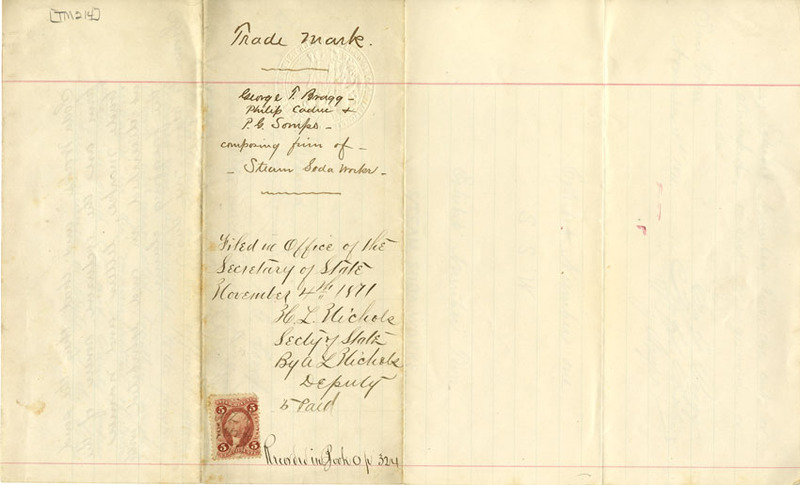 [TM214]
Trade Mark.
George T. Bragg -
Philip Caduc +
P. G. Somps -
composing firm of -
- Steam Soda Works -
Filed in Office of the
Secretary of State
November 4th 1871
H. L. Nichols
Secty of State
By A L Nichols
Deputy
5 Paid
5 5
5 5
Recorded in Book O p 324